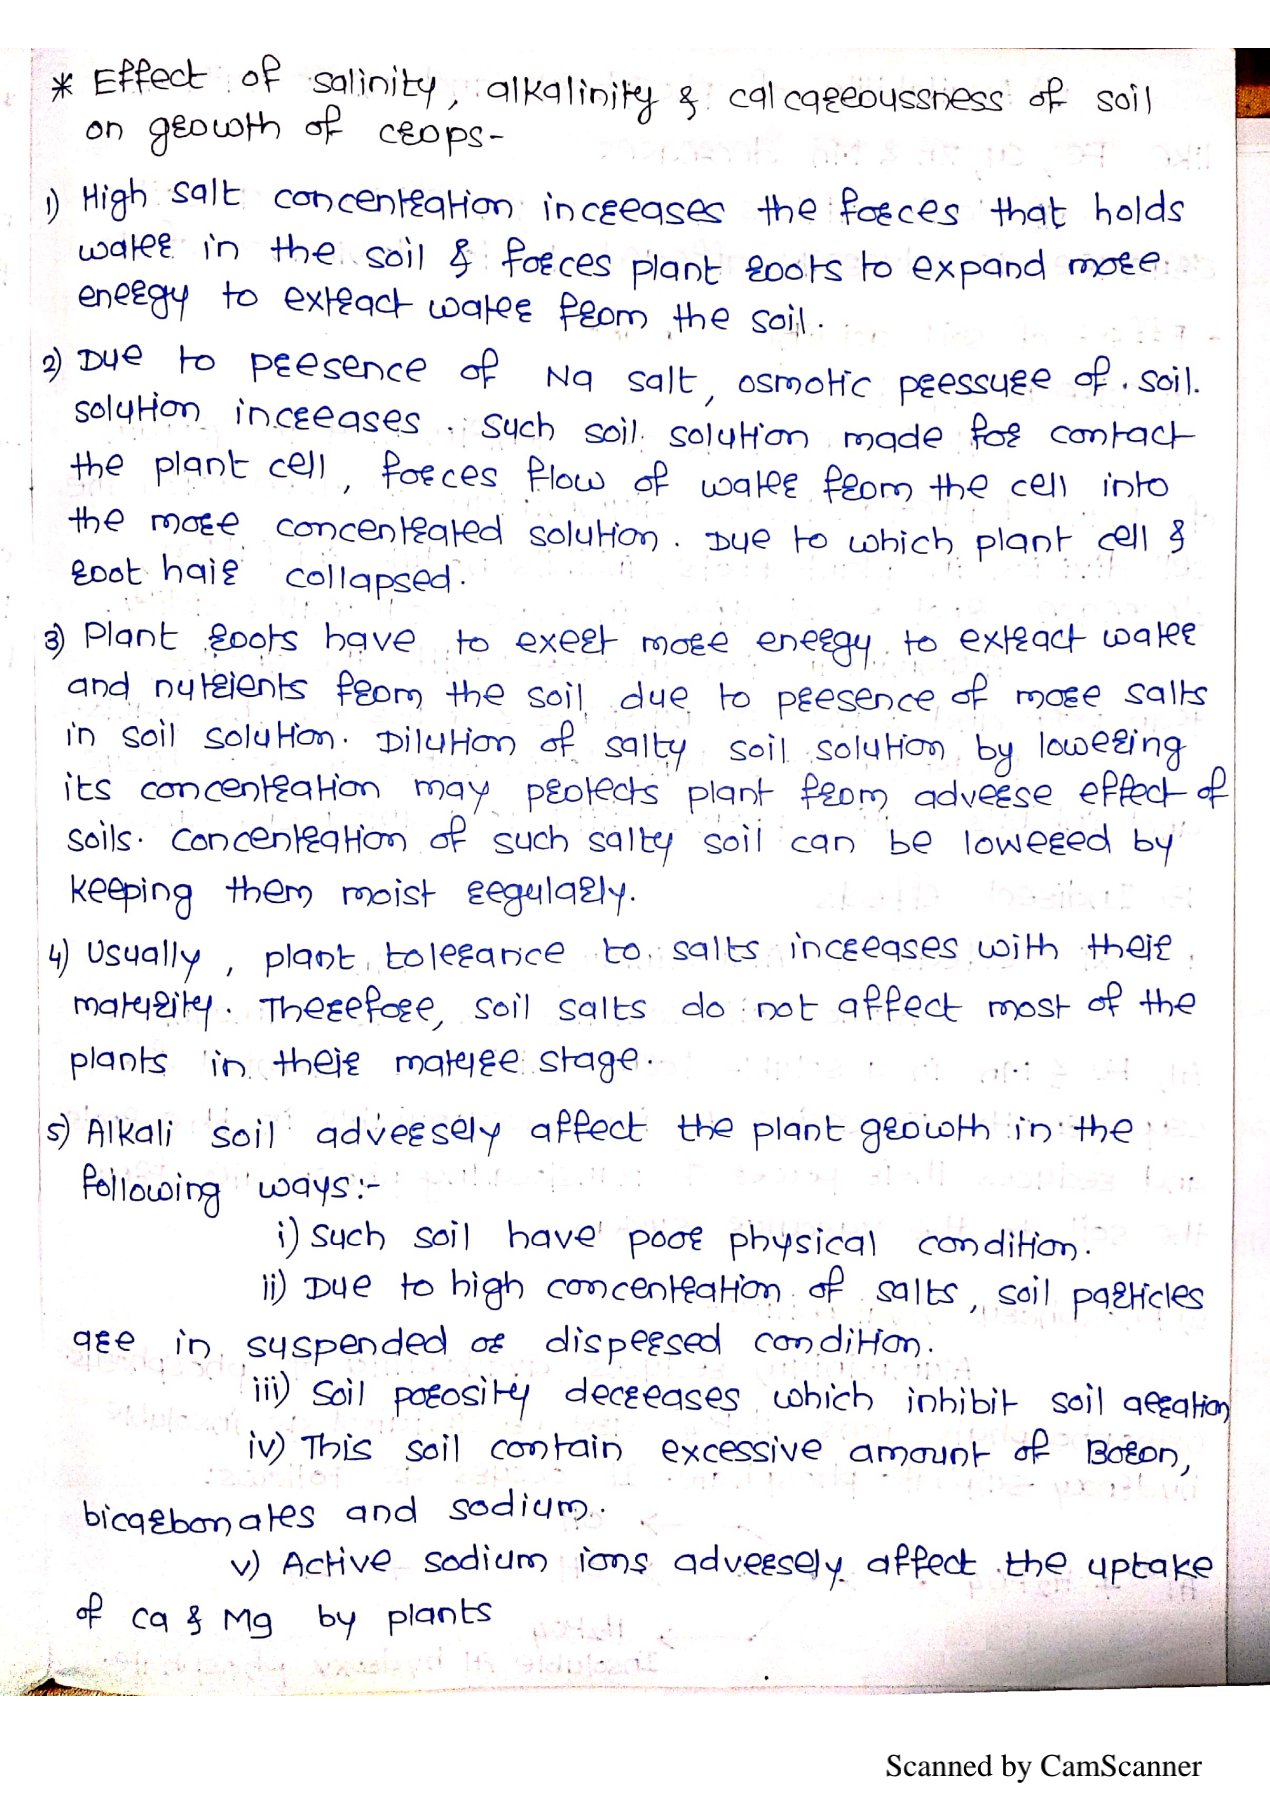 * Effect of salinity, alkalinity & calcareoussness of soil
on growth of crops-
1) High salt concentration increases the forces that holds
water in the soil & forces plant roots to expand more
energy to extract water from the soil.
2) Due to presence of Na salt, osmotic pressure of soil.
solution increases. Such soil solution made for contact
the plant cell, forces flow of water from the cell into
the more concentrated solution. Due to which plant cell &
root hair collapsed.
3) Plant roots have to exert more energy to extract water
and nutrients from the soil due to presence of more salts
in soil solution. Dilution of salty soil solution by lowering
its concentration may protects plant from adverse effect of
soils. Concentration of such salty soil can be lowered by
keeping them moist regularly.
4) Usually, plant tolerance to salts increases with their
maturity. Therefore, soil salts do not affect most of the
plants in their mature stage.
5) Alkali soil adversely affect the plant growth in the
following ways:-
i) Such soil have poor physical condition.
ii) Due to high concentration of salts, soil particles
are in suspended or dispersed condition.
iii) Soil porosity decreases which inhibit soil aeration
iv) This soil contain excessive amount of Boron,
bicarbonates and sodium.
v) Active sodium ions adversely affect the uptake
of Ca & Mg by plants
Scanned by CamScanner